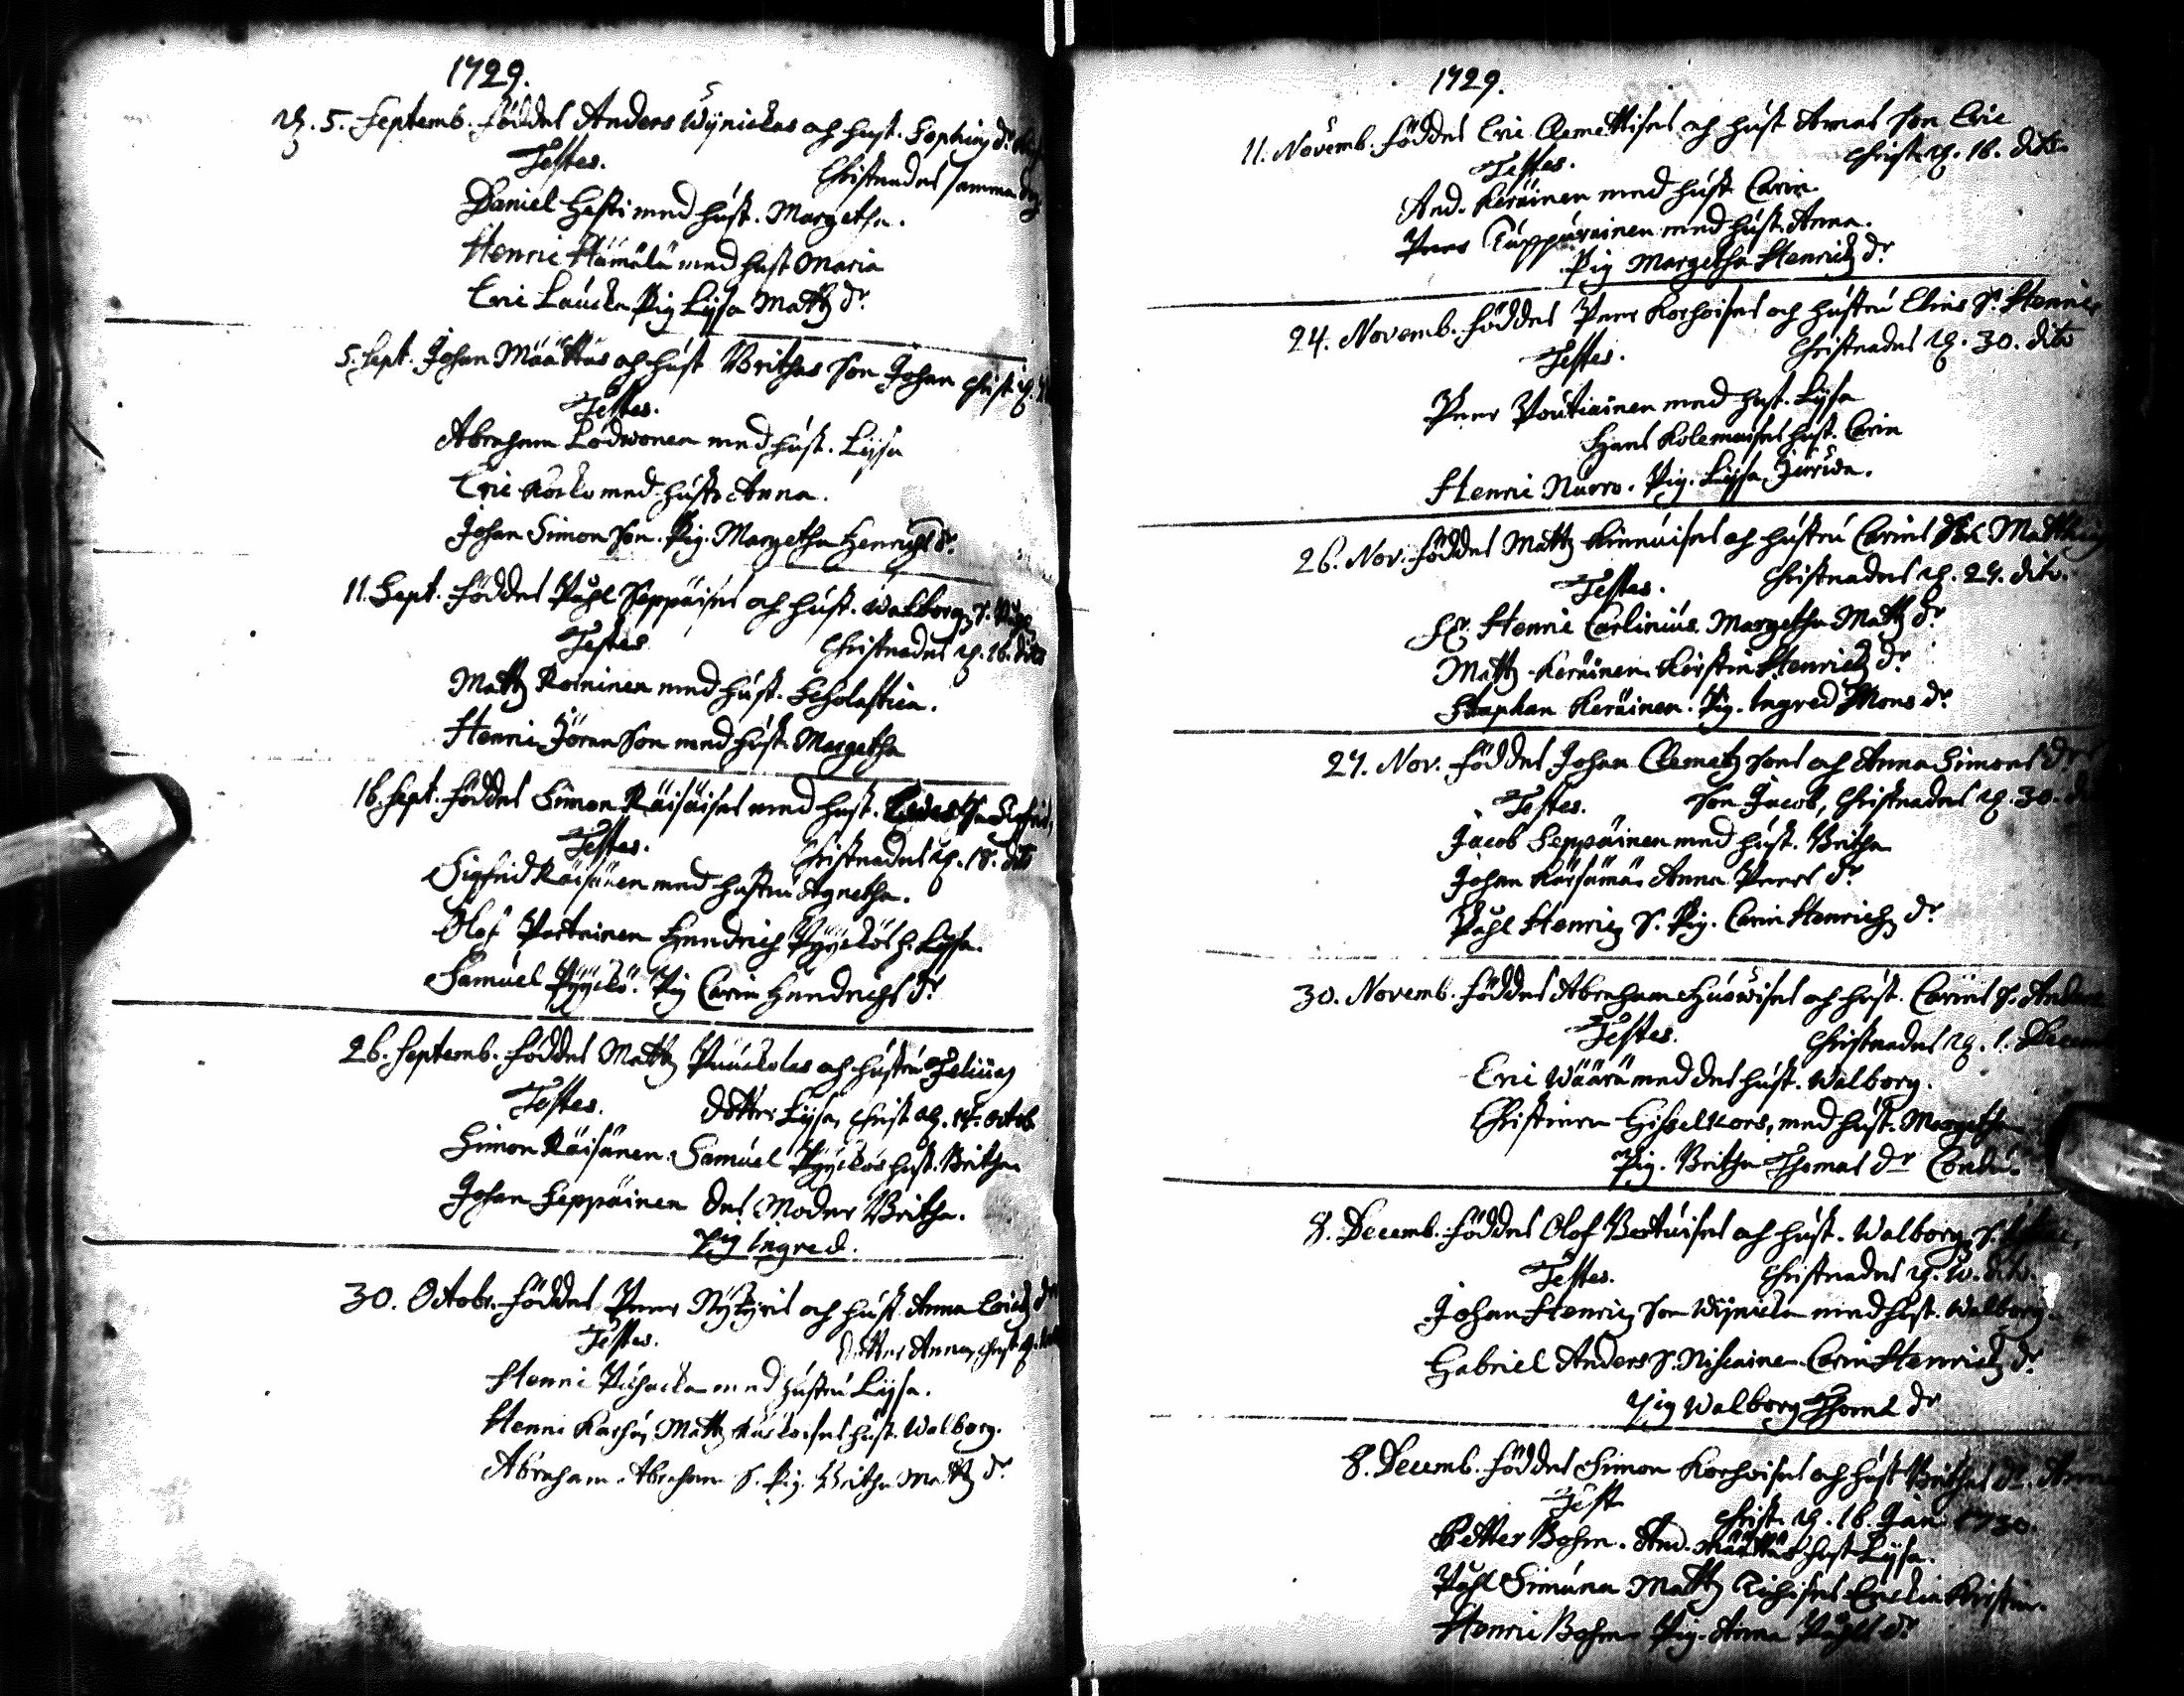 1729.
d. 5. Septemb. föddes Anders Wÿnickas och hust. Sophias dr.
Testes. Christnades samma dag
Daniel Hasti med hust. Margetha.
Henric Hämälä med hust Maria
Eric Laucka Pig Lÿsa Mattz dr.
5. Sept. Johan Määttas och hust Brithas Son Johan Christ. d.
Testes.
Abraham Lodwonen med hust. Lijsa
Eric Korko med hustr Anna.
Johan Simon Son. Pig. Margetha Henrichs dr.
11. Sept. föddes Påhl Seppäises och hust. Walborgz S. Påhl
Testes Christnades d. 16. dito
Mattz Roininen med hust. Scholastica.
Henric Jöran Son med hust. Margetha
16. Sept. föddes Simon Räisäises med hust. Sigfrid,
Testes. Christnades d. 18. dito
Sigfrid Räisänen med hustru Agnetha.
Olof Partainen Hendrich Pÿÿckös h. Lÿsa.
Samuel Pÿÿckö. Pig Carin Hendrichs dr
26. Septemb. föddes Mattz Puuckolas och hustru
Testes. dotter Lijsa, Christ d. Octob.
Simon Räisänen. Samuel Pÿÿckös hust. Britha
Johan Seppäinen des Moder Britha.
Pig Ingred.
30. Octobr. föddes Peer Nÿkÿris och hust. Anna Erichz dr
Testes. dotter Anna, Christ d.
Henric Pichacka med hustru Lijsa.
Henric Karhu, Mattz Kuskoises hust. Walborg.
Abraham Abraham S. Pig. Britha Mattz dr.
1729.
11. Novemb. föddes Eric Clemettises och hust Annas Son Eric
Testes. Christ. d. 16. dito
And. Keräinen med hust Carin.
Peer Tuppurainen med hust. Anna.
Pig Margetha Henrichz dr
24. Novemb. föddes Peer Korhoises och hustru Elins S. Henric
Testes. Christnades d. 30. dito
Peer Poutiainen med hust. Lÿsa
Hans Kolemaises hust. Carin
Henric Nurro. Pig. Lijsa
26. Nov. föddes Mattz Kinnuises och hustru Carins Son Matthias
Testes. Christnades d. 27. dito.
Hr. Henric Carlinius. Margetha Mattz dr
Mattz Keräinen. Kerstin Henrichz dr
Staphan Keräinen. Pig. Ingred Mons dr
27. Nov. föddes Johan Clemetz Sons och Anna Simons dr
Testes. Son Jacob, Christnades d. 30.
Jacob Seppäinen med hust. Britha
Johan Kärsämä, Anna Peers dr
Påhl Henricz S. Pig. Carin Henrichz dr
30. Novemb. föddes Abraham Huowises och hust. Carins S. Anders
Testes. Christnades d. 1. Decem
Eric Wäärä med des hust. Walborg.
Christiern Gisselkors, med hust. Margetha
Pig. Britha Thomas dr
8. Decemb. föddes Olof Bertuises och hust. Walborgz S.
Testes. Christnades d. 10. dito.
Johan Henricz Son Wÿnicka med hust. Walborg.
Gabriel Anders S. Niskainen Carin Henrichz dr
Pig Walborg Thoms dr
8. Decemb. föddes Simon Korhoises och hust Brithas dr. Anna
Test Christ. d. 16. Jan 1730.
Petter Bohm. And. Määttäs hust Lijsa.
Påhl Simuna Mattz
Henric Bohm Pig. Anna Påhls dr